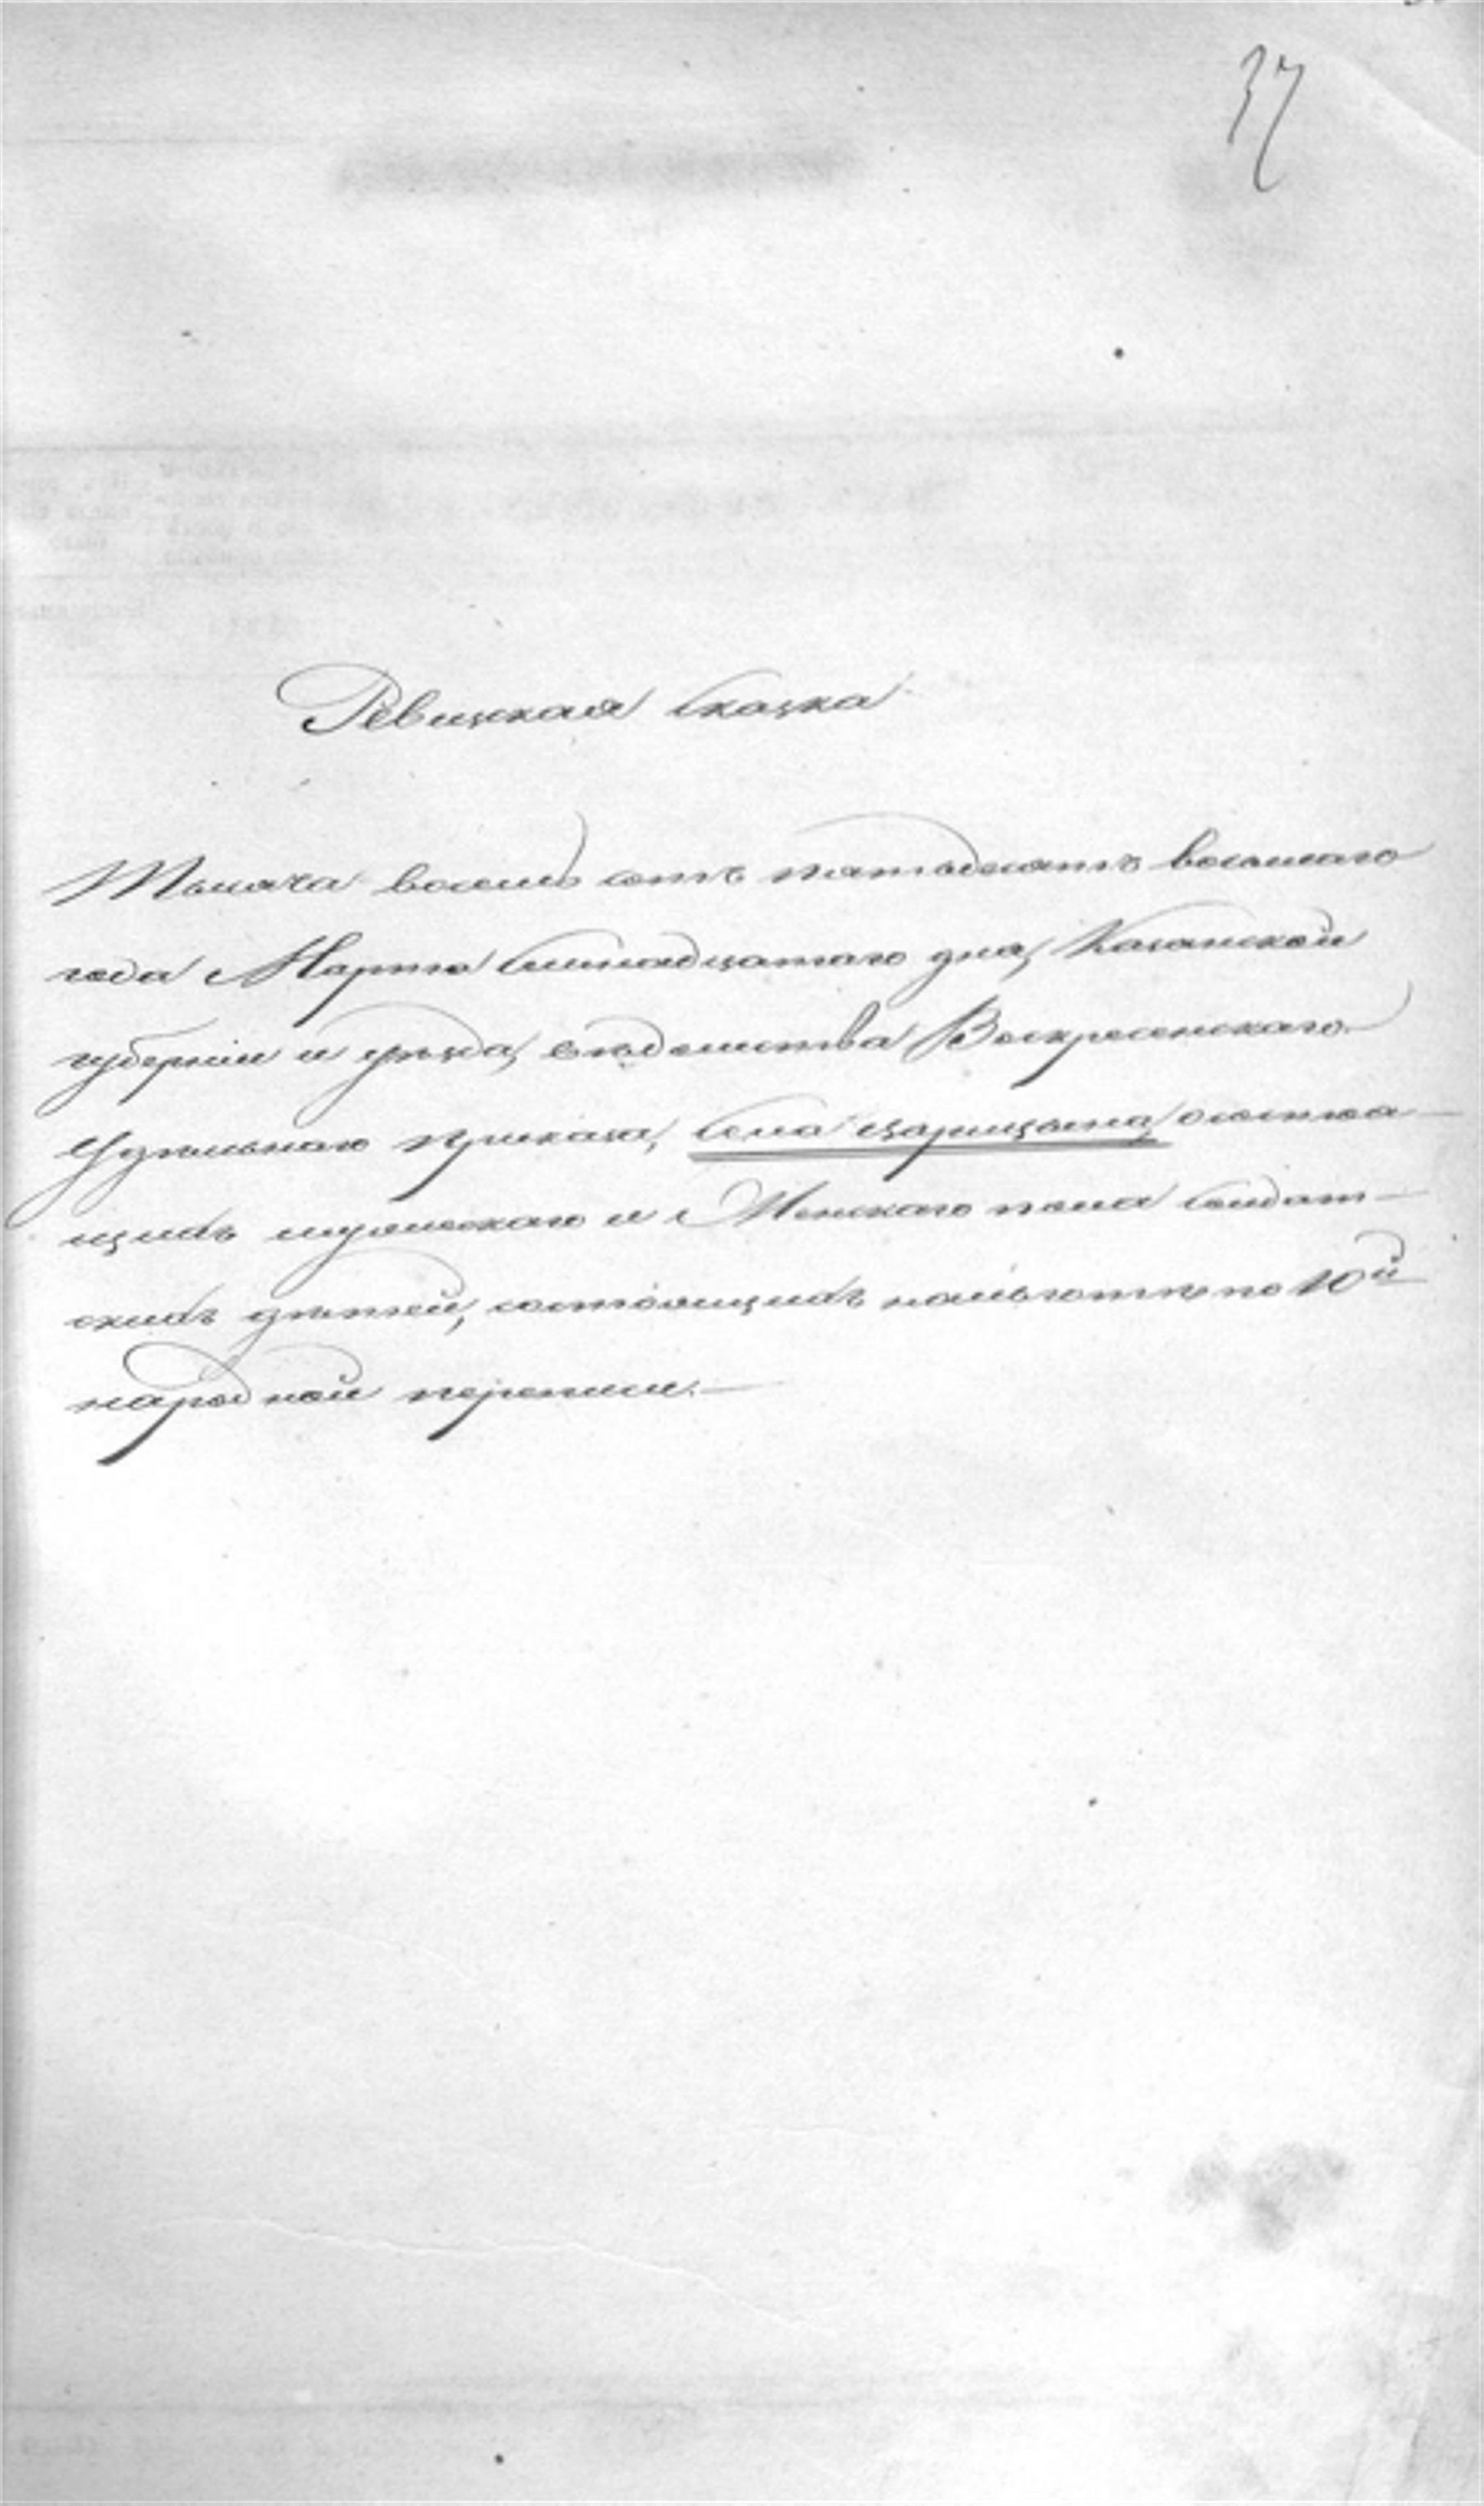 37
Ревизская сказка
Тысяча восемь сотъ пятьдесятъ восьмаго
года Марта семнадцатаго дня, Казанской
губерніи и уѣзда, вѣдомства Воскресенскаго
Удѣльнаго приказа, села Царицына, о
мужескаго и Женскаго пола солдат-
скихъ дѣтей, состоящихъ на по 10й
народной переписи.—